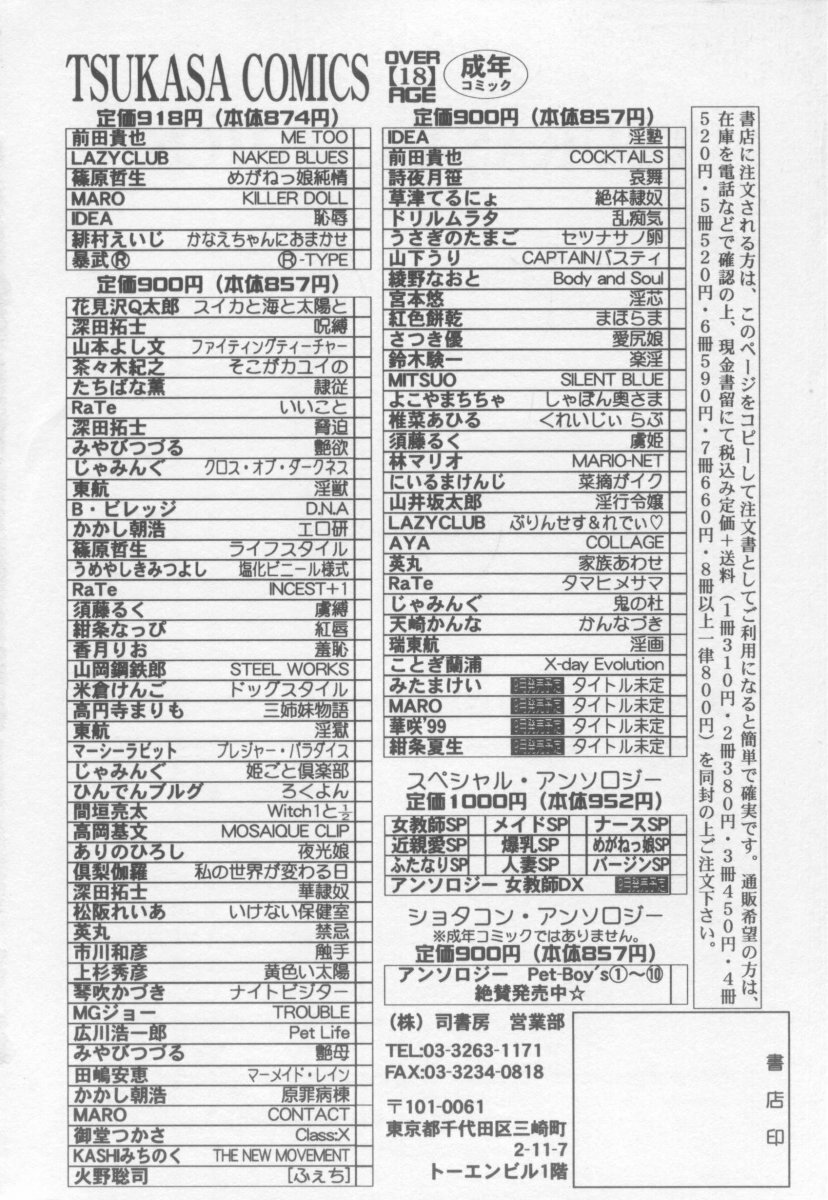 TSUKASA COMICS
OVER
【18】
AGE
成年
コミック
定価918円（本体874円）
前田貴也 ME TOO
LAZYCLUB NAKED BLUES
篠原哲生 めがねっ娘純情
MARO KILLER DOLL
IDEA 恥辱
緋村えいじ かなえちゃんにおまかせ
暴武Ⓡ Ⓡ-TYPE
定価900円（本体857円）
花見沢Q太郎 スイカと海と太陽と
深田拓士 呪縛
山本よし文 ファイティングティーチャー
茶々木紀之 そこがカユイの
たちばな薫 隷従
RaTe いいこと
深田拓士 脅迫
みやびつづる 艶欲
じゃみんぐ クロス・オブ・ダークネス
東航 淫獣
B・ビレッジ D.N.A
かかし朝浩 エロ研
篠原哲生 ライフスタイル
うめやしきみつよし 塩化ビニール様式
RaTe INCEST+1
須藤るく 虜縛
紺条なっぴ 紅唇
香月りお 羞恥
山岡鋼鉄郎 STEEL WORKS
米倉けんご ドッグスタイル
高円寺まりも 三姉妹物語
東航 淫獄
マーシーラビット プレジャー・パラダイス
じゃみんぐ 姫ごと倶楽部
ひんでんブルグ ろくよん
間垣亮太 Witch1と½
高岡基文 MOSAIQUE CLIP
ありのひろし 夜光娘
倶梨伽羅 私の世界が変わる日
深田拓士 華隷奴
松阪れいあ いけない保健室
英丸 禁忌
市川和彦 触手
上杉秀彦 黄色い太陽
琴吹かづき ナイトビジター
MGジョー TROUBLE
広川浩一郎 Pet Life
みやびつづる 艶母
田嶋安恵 マーメイド・レイン
かかし朝浩 原罪病棟
MARO CONTACT
御堂つかさ Class:X
KASHIみちのく THE NEW MOVEMENT
火野聡司 [ふぇち]
定価900円（本体857円）
IDEA 淫塾
前田貴也 COCKTAILS
詩夜月笹 哀舞
草津てるにょ 絶体隷奴
ドリルムラタ 乱痴気
うさぎのたまご セツナサノ卵
山下うり CAPTAINバスティ
綾野なおと Body and Soul
宮本悠 淫芯
紅色餅乾 まほらま
さつき優 愛尻娘
鈴木験一 楽淫
MITSUO SILENT BLUE
よこやまちちゃ しゃぼん奥さま
椎菜あひる くれいじぃ らぶ
須藤るく 虜姫
林マリオ MARIO-NET
にいるまけんじ 菜摘がイク
山井坂太郎 淫行令嬢
LAZYCLUB ぷりんせす&れでぃ♡
AYA COLLAGE
英丸 家族あわせ
RaTe タマヒメサマ
じゃみんぐ 鬼の杜
天崎かんな かんなづき
瑞東航 淫画
ことぎ蘭浦 X-day Evolution
みたまけい タイトル未定
MARO タイトル未定
華咲'99 タイトル未定
紺条夏生 タイトル未定
スペシャル・アンソロジー
定価1000円（本体952円）
女教師SP メイドSP ナースSP
近親愛SP 爆乳SP めがねっ娘SP
ふたなりSP 人妻SP バージンSP
アンソロジー 女教師DX
ショタコン・アンソロジー
※成年コミックではありません。
定価900円（本体857円）
アンソロジー Pet-Boy's①〜⑩
絶賛発売中☆
（株）司書房 営業部
TEL:03-3263-1171
FAX:03-3234-0818
〒101-0061
東京都千代田区三崎町
2-11-7
トーエンビル1階
書店印
書店に注文される方は、このページをコピーして注文書としてご利用になると簡単で確実です。通販希望の方は、
在庫を電話などで確認の上、現金書留にて税込み定価＋送料（1冊310円・2冊380円・3冊450円・4冊
520円・5冊520円・6冊590円・7冊660円・8冊以上一律800円）を同封の上ご注文下さい。